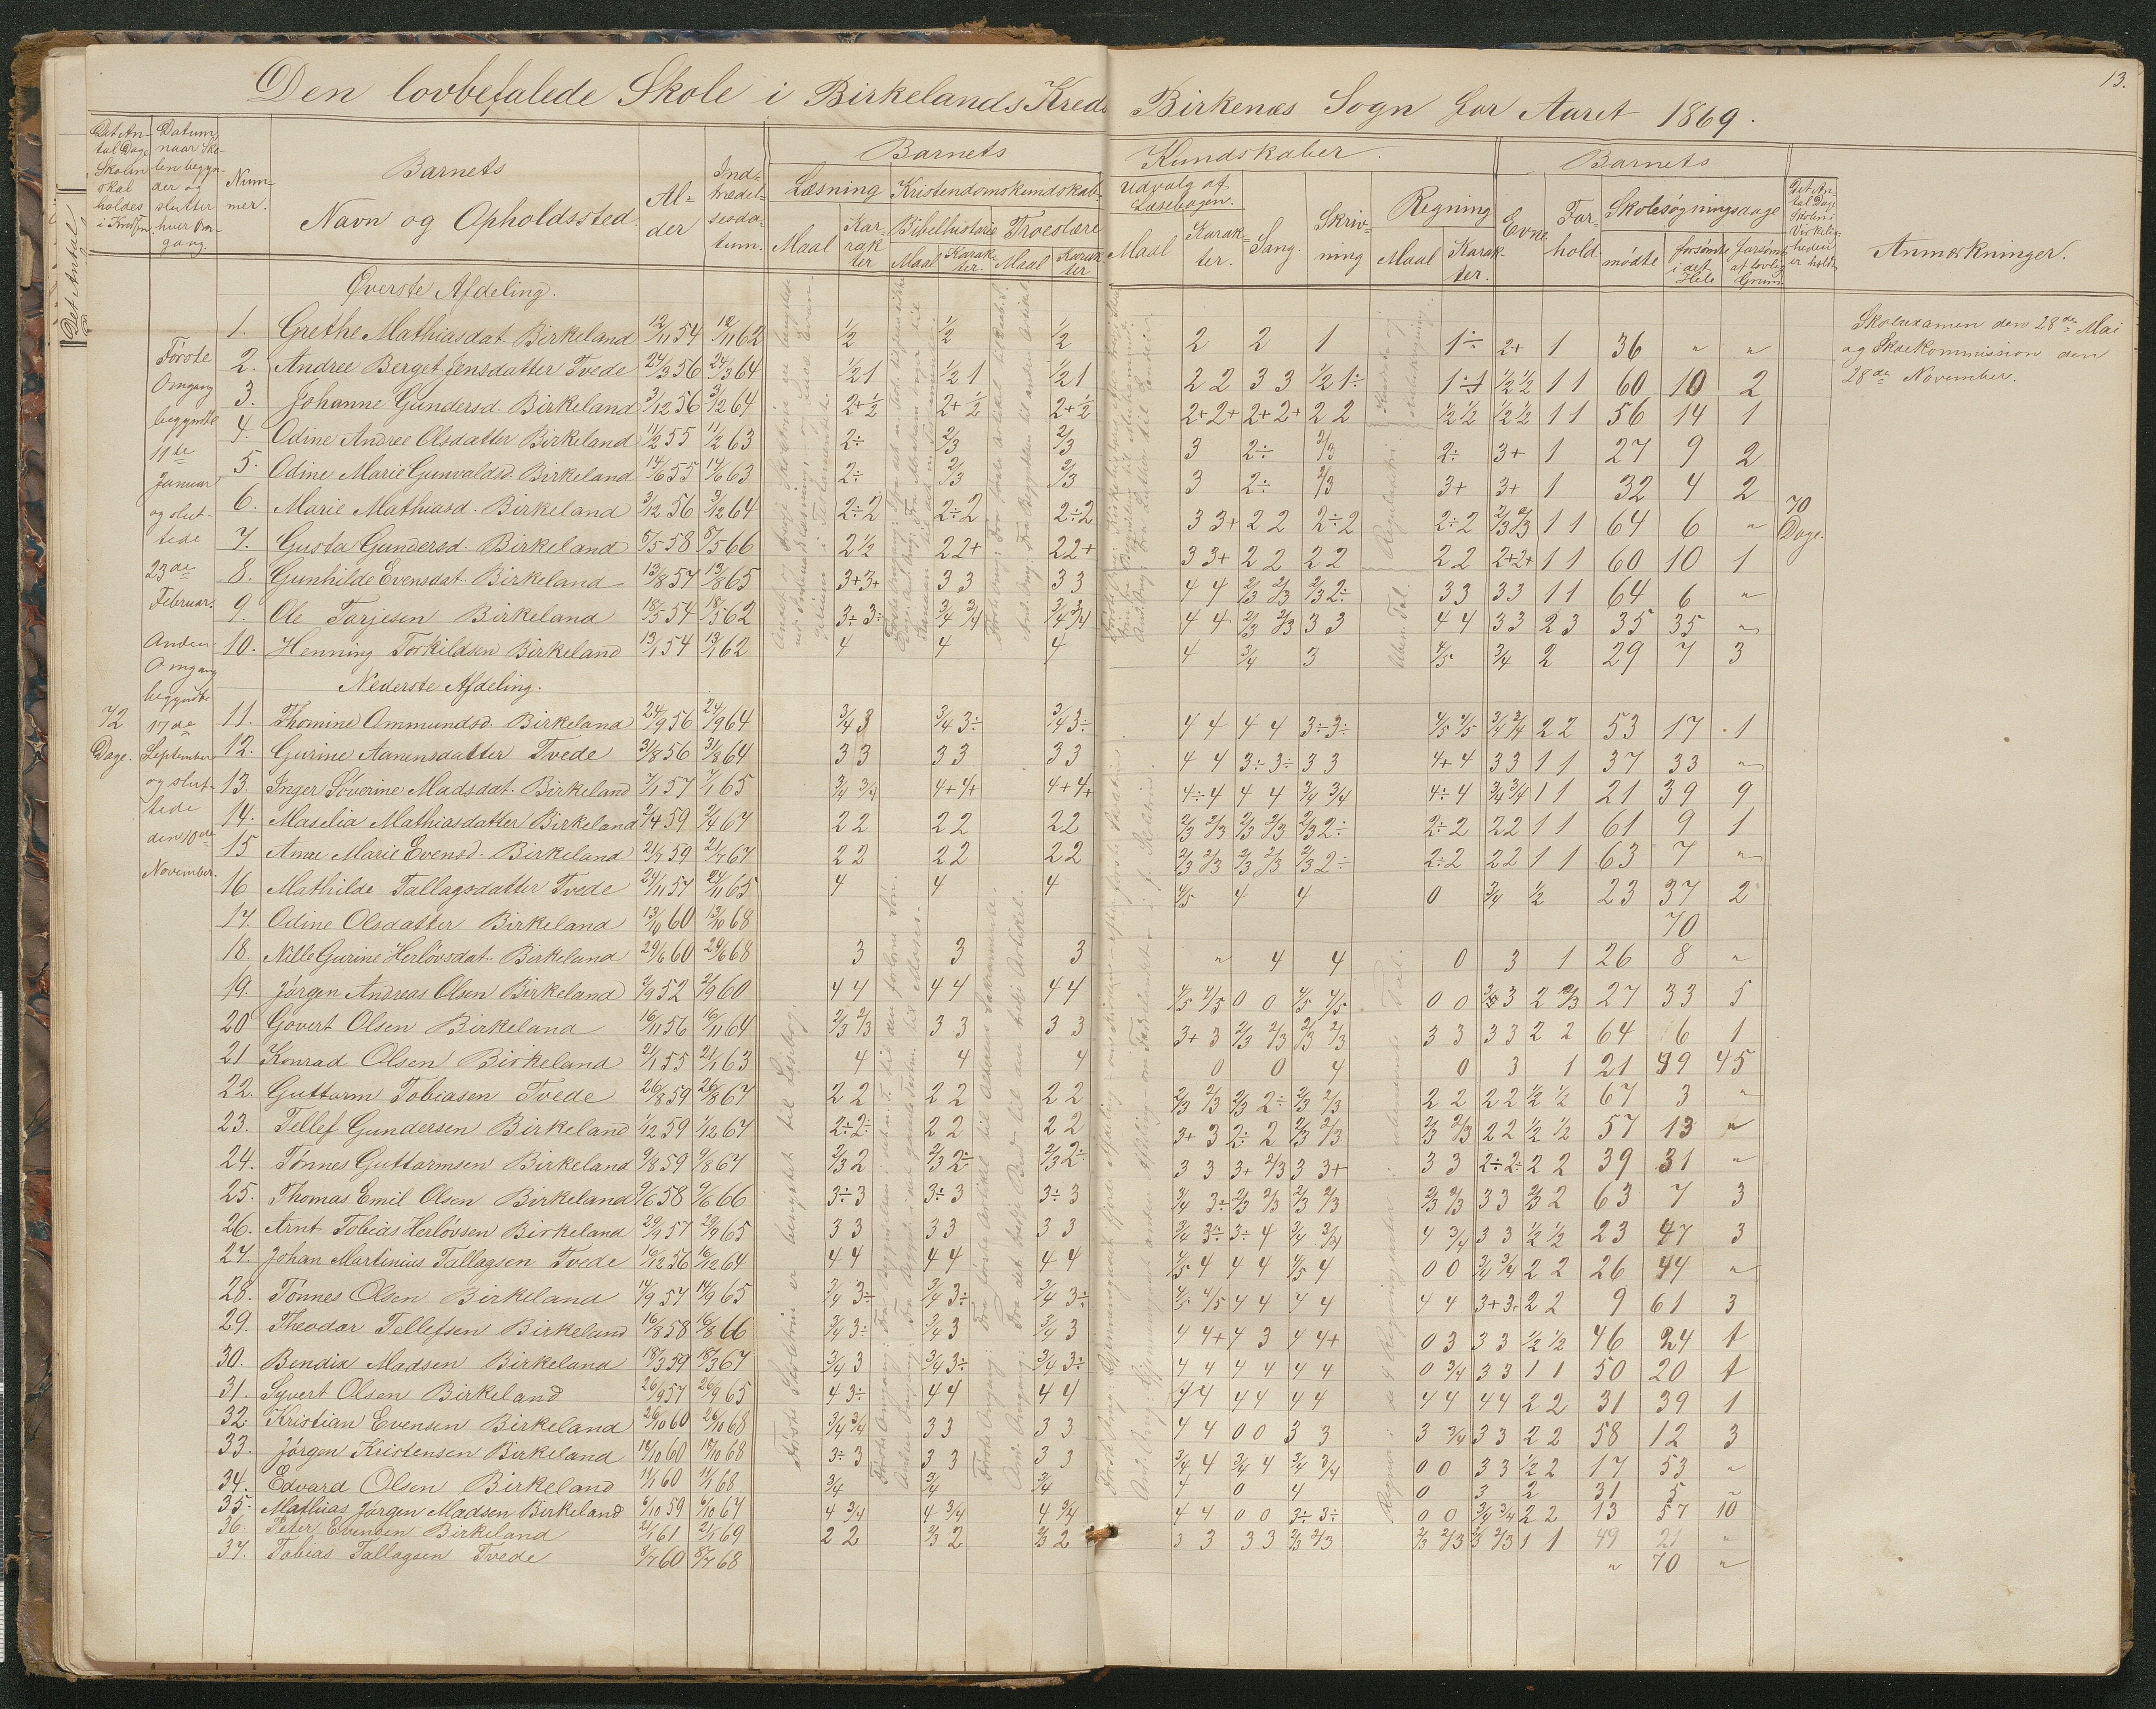 13.
Den lovbefalede Skole i Birkelands Kreds Birkenæs Sogn for Aaret 1869.
Det Antal Dage Skolen skal holdes i Kredsen
Datum, naar Skolen begynder og slutter hver Omgang.
Nummer.
Barnets
Navn og Opholdssted.
Alder
Indtrædelsesdatum.
Barnets Kundskaber.
Læsning
Maal
Karakter
Kristendomskundskab
Bibelhistorie
Maal
Karakter.
Troeslære
Maal
Karakter
Udvalg af Læsebogen.
Maal
Karakter.
Sang.
Skrivning
Regning
Maal
Karakter.
Barnets
Evne
Forhold
Skolesøgningsdage
mødte
forsømte i det Hele
forsømte af lovlig Grund
Det Antal Dage Skolen i Virkeligheden er holdt
Anmærkninger.
Det Antal
Øverste Afdeling.
1. Grethe Mathiasdat. Birkeland 12/11 54 12/11 62 1/2 1/2 1/2 2 2 1 1÷ 2+ 1 36 " "
2. Andree Berget Jensdatter Tvede 24/3 56 24/3 64 1/2 1 1/2 1 1/2 1 2 2 3 3 1/2 1÷ 1÷1 1/2 1/2 1 1 60 10 2
3. Johanne Gundersd. Birkeland 3/12 56 3/12 64 2+ 1/2 2+ 1/2 2+ 1/2 2+ 2+ 2+ 2+ 2 2 1/2 1/2 1/2 1/2 1 1 56 14 1
4. Odine Andree Olsdatter Birkeland 11/2 55 11/2 63 2÷ 2/3 2/3 3 2÷ 2/3 2÷ 3+ 1 27 9 2
5. Odine Marie Gunvaldsd. Birkeland 14/6 55 14/6 63 2÷ 2/3 2/3 3 2÷ 2/3 3+ 3+ 1 32 4 2
6. Marie Mathiasd. Birkeland 3/12 56 3/12 64 2÷2 2÷2 2÷2 3 3+ 2 2 2÷2 2÷2 2/3 2/3 1 1 64 6 "
7. Gusta Gundersd. Birkeland 8/5 58 8/5 66 2 1/2 2 2+ 2 2+ 3 3+ 2 2 2 2 2 2 2+2+ 1 1 60 10 1
8. Gunhilde Evensdat. Birkeland 13/8 57 13/8 65 3+3+ 3 3 3 3 4 4 2/3 2/3 2/3 2÷ 3 3 3 3 1 1 64 6 "
9. Ole Torjesen Birkeland 18/5 54 18/5 62 3÷ 3÷ 3/4 3/4 3/4 3/4 4 4 2/3 2/3 3 3 4 4 3 3 2 3 35 35 "
10. Henning Torkildsen Birkeland 13/1 54 13/1 62 4 4 4 4 3/4 3 4/5 3/4 2 29 7 3
Nederste Afdeling.
11. Thomine Ommundsd. Birkeland 24/9 56 24/9 64 3/4 3 3/4 3÷ 3/4 3÷ 4 4 4 4 3÷3÷ 4/5 4/5 3/4 3/4 2 2 53 17 1
12. Gurine Aanensdatter Tvede 31/8 56 31/8 64 3 3 3 3 3 3 4 4 3÷3÷ 3 3 4+ 4 3 3 1 1 37 33 "
13. Inger Söverine Madsdat. Birkeland 7/1 57 7/1 65 3/4 3/4 4+ 4+ 4+ 4+ 4÷4 4 4 3/4 3/4 4÷ 4 3/4 3/4 1 1 21 39 9
14. Maselia Mathiasdatter Birkeland 2/4 59 2/4 67 2 2 2 2 2 2 2/3 2/3 2/3 2/3 2/3 2÷ 2÷2 2 2 1 1 61 9 1
15 Anne Marie Evensd. Birkeland 21/7 59 21/7 67 2 2 2 2 2 2 2/3 2/3 2/3 2/3 2/3 2÷ 2÷2 2 2 1 1 63 7 "
16 Mathilde Tallagsdatter Tvede 24/11 57 24/11 65 4 4 4 4/5 4 4 0 3/4 1/2 23 37 2
17. Odine Olsdatter Birkeland 13/10 60 13/10 68 70
18. Nille Gurine Herlövsdat. Birkeland 29/6 60 29/6 68 3 3 3 " 4 4 0 3 1 26 8 "
19. Jörgen Andreas Olsen Birkeland 2/9 52 2/9 60 4 4 4 4 4 4 4/5 4/5 0 0 4/5 4/5 0 0 3 2 2/3 27 33 5
20 Govert Olsen Birkeland 16/11 56 16/11 64 2/3 2/3 3 3 3 3 3+ 3 2/3 2/3 2/3 2/3 3 3 3 3 2 2 64 6 1
21 Konrad Olsen Birkeland 21/1 55 21/1 63 4 4 4 0 0 4 0 3 1 21 49 45
22. Guttorm Tobiasen Tvede 26/8 59 26/8 67 2 2 2 2 2 2 2/3 2/3 2/3 2÷ 2/3 2/3 2 2 2 2 1/2 1/2 67 3 "
23. Tellef Gundersen Birkeland 1/12 59 1/12 67 2÷2÷ 2 2 2 2 3+ 3 2÷ 2 2/3 2/3 2/3 2/3 2 2 1/2 1/2 57 13 "
24. Tönnes Guttormsen Birkeland 9/8 59 9/8 67 2/3 2 2/3 2÷ 2/3 2÷ 3 3 3+ 2/3 3 3+ 3 3 2÷2÷ 2 2 39 31 "
25. Thomas Emil Olsen Birkeland 9/6 58 9/6 66 3÷3 3÷ 3 3÷ 3 3/4 3÷ 2/3 2/3 2/3 2/3 2/3 2/3 3 3 2/3 2 63 7 3
26. Arnt Tobias Herlövsen Birkeland 29/9 57 29/9 65 3 3 3 3 3 3 3/4 3÷ 3÷ 4 3/4 3/4 4 3/4 3 3 1/2 1/2 23 47 3
27. Johan Martinius Tallagsen Tvede 16/12 56 16/12 64 4 4 4 4 4 4 4/5 4 4 4 4/5 4 0 0 3/4 3/4 2 2 26 44 "
28. Tönnes Olsen Birkeland 14/9 57 14/9 65 3/4 3÷ 3/4 3÷ 3/4 3÷ 4/5 4/5 4 4 4 4 4 4 3+3+ 2 2 9 61 3
29. Theodor Tellefsen Birkeland 16/8 58 16/8 66 3/4 3÷ 3/4 3 3/4 3 4 4+ 4 3 4 4+ 0 3 3 3 1/2 1/2 46 24 1
30. Bendix Madsen Birkeland 18/3 59 18/3 67 3/4 3 3/4 3÷ 3/4 3÷ 4 4 4 4 4 4 0 3/4 3 3 1 1 50 20 1
31. Syvert Olsen Birkeland 26/9 57 26/9 65 4 3÷ 4 4 4 4 4 4 4 4 4 4 4 4 4 4 2 2 31 39 1
32. Kristian Evensen Birkeland 26/10 60 26/10 68 3/4 3/4 3 3 3 3 4 4 0 0 3 3 3 3/4 3 3 2 2 58 12 3
33. Jörgen Kristensen Birkeland 18/10 60 18/10 68 3÷ 3 3 3 3 3 3/4 4 3/4 4 3/4 3/4 0 0 3 3 1/2 2 17 53 "
34. Edvard Olsen Birkeland 11/1 60 11/1 68 3/4 3/4 3/4 4 0 4 0 3 2 31 5 "
35. Mathias Jörgen Madsen Birkeland 6/10 59 6/10 67 4 3/4 4 3/4 4 3/4 4 4 0 0 3÷ 3÷ 0 0 3/4 3/4 2 2 13 57 10
36. Peter Evensen Birkeland 21/1 61 21/1 69 2 2 2/3 2 2/3 2 3 3 3 3 2/3 2/3 2/3 2/3 2/3 2/3 1 1 49 21 "
37. Tobias Tallagsen Tvede 8/7 60 8/7 68 " 70 "
72 Dage.
Förste
Omgang
begyndte
11te
Januar
og slut-
tede
23de
Februar.
Anden
Omgang
begyndte
17de
September
og slut-
tede
den 10de
November.
70
Dage.
Skoleexamen den 28de Mai
og Skolekommission den
28de November.